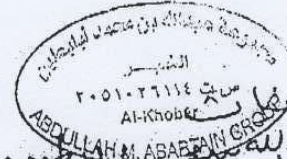 مجموعة عبدالله بن محمد أبابطين
الخبـــر
س ت ٢٠٥١٠٢٦١١٤
Al-Khobar
ABDULLAH M. ABABTAIN GROUP